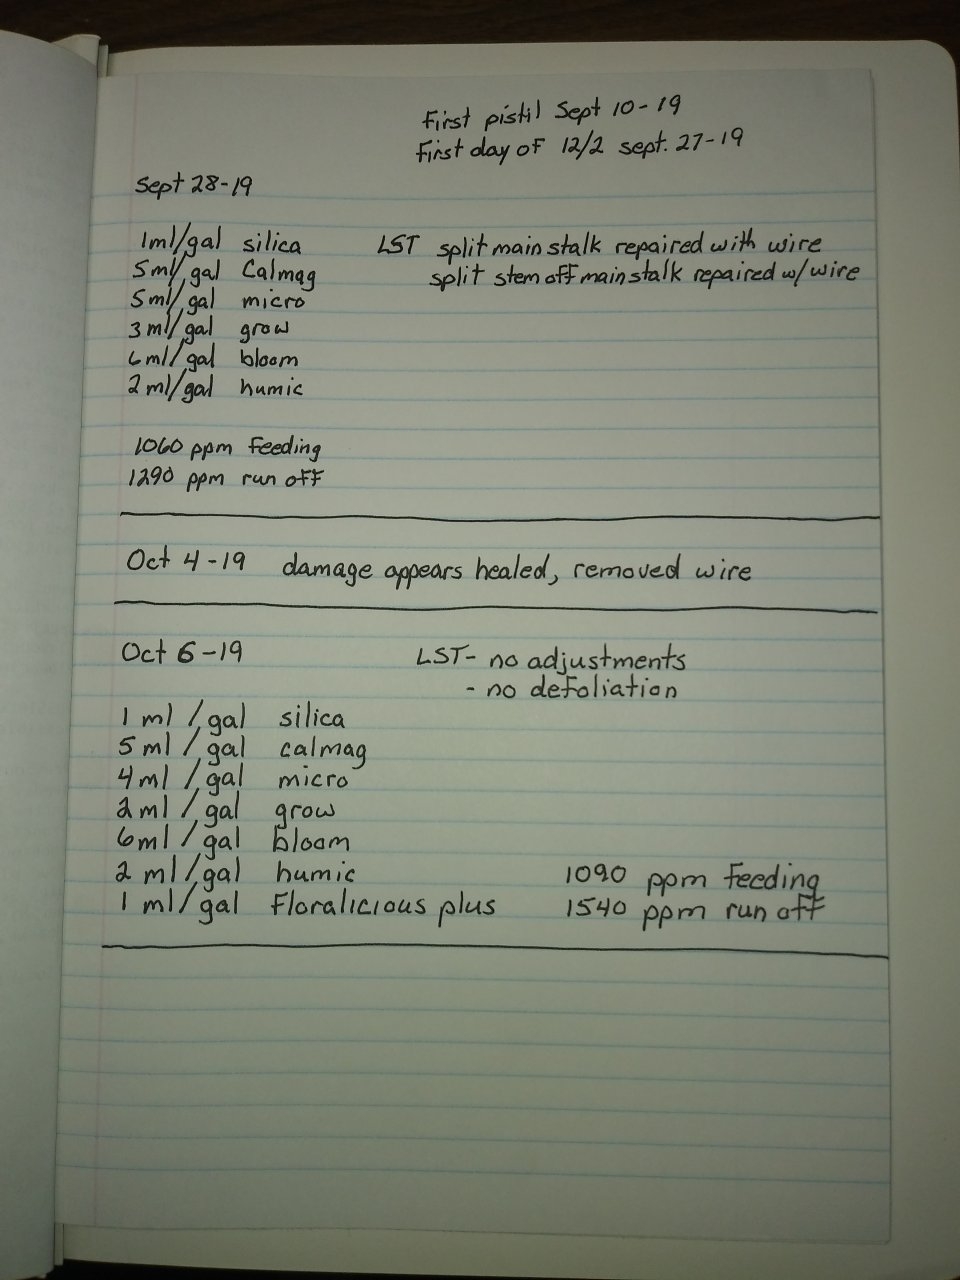 First pistil Sept 10-19
First day of 12/2 sept. 27-19
Sept 28-19
1ml/gal silica
LST split main stalk repaired with wire
5ml/gal Calmag
split stem off main stalk repaired w/ wire
5ml/gal micro
3ml/gal grow
6ml/gal bloom
2ml/gal humic
1060 ppm feeding
1290 ppm run off
Oct 4-19 damage appears healed, removed wire
Oct 6-19
LST- no adjustments
- no defoliation
1 ml/gal silica
5 ml/gal calmag
4ml/gal micro
2ml/gal grow
6ml/gal bloom
2 ml/gal humic
1090 ppm feeding
1 ml/gal Floralicious plus
1540 ppm run off